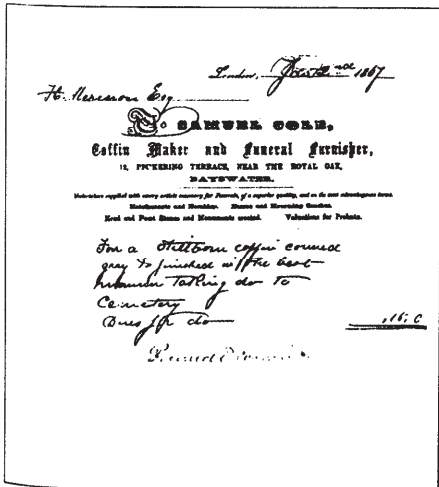 London, 2nd 1867
H. Esq
To SAMUEL COLE,
Coffin Maker and Funeral Furnisher,
12, PICKERING TERRACE, NEAR THE ROYAL OAK,
BAYSWATER.
Undertakers supplied with every article necessary for Funerals, of a superior quality, and on the most advantageous terms.
Hatchments and Hearses and Mourning Coaches.
Head and Foot Stones and Monuments erected. Valuations for Probate.
For a Stillborn coffin covered
grey & finished in the best
manner Taking do to
Cemetery
Dues for do